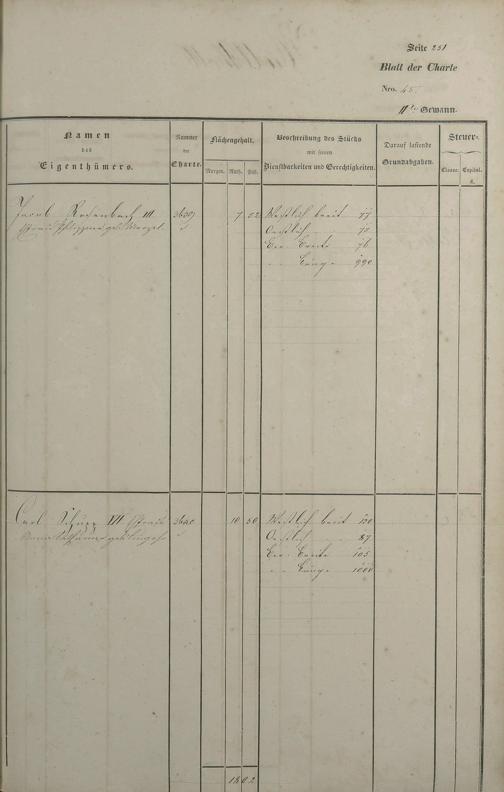 Seite 251
Blatt der Charte
Nro. 45
11te Gewann.
Namen
des
Eigenthümers.
Nummer
der
Charte.
Flächengehalt.
Morgen. Ruth. Fuß.
Beschreibung des Stücks
mit seinen
Dienstbarkeiten und Gerechtigkeiten.
Darauf lastende
Grundabgaben.
Steuer-
Classe. Capital.
fl.
Jacob Rosenbach III. 3639 7 02 Westlich breit 77
Oestlich 72
Ger. Breite 76
" " Länge 990
Carl Schupp VII 3640 10 50 Westlich breit 120
Oestlich 87
Ger. Breite 105
" " Länge 1000
18 02